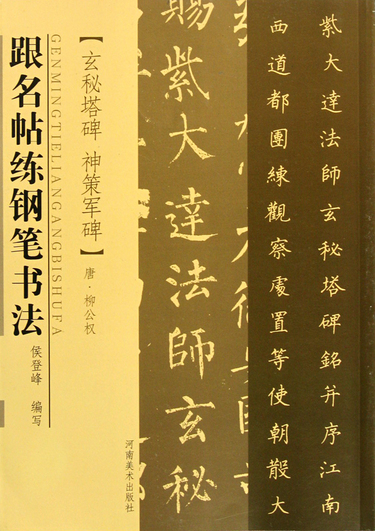 跟名帖练钢笔书法
GENMINGTIELIANGANGBISHUFA
【玄秘塔碑 神策军碑】
唐·柳公权
侯登峰 编写
河南美术出版社
賜紫大達法師玄秘
紫大達法師玄秘塔碑銘并序江南
西道都團練觀察處置等使朝散大